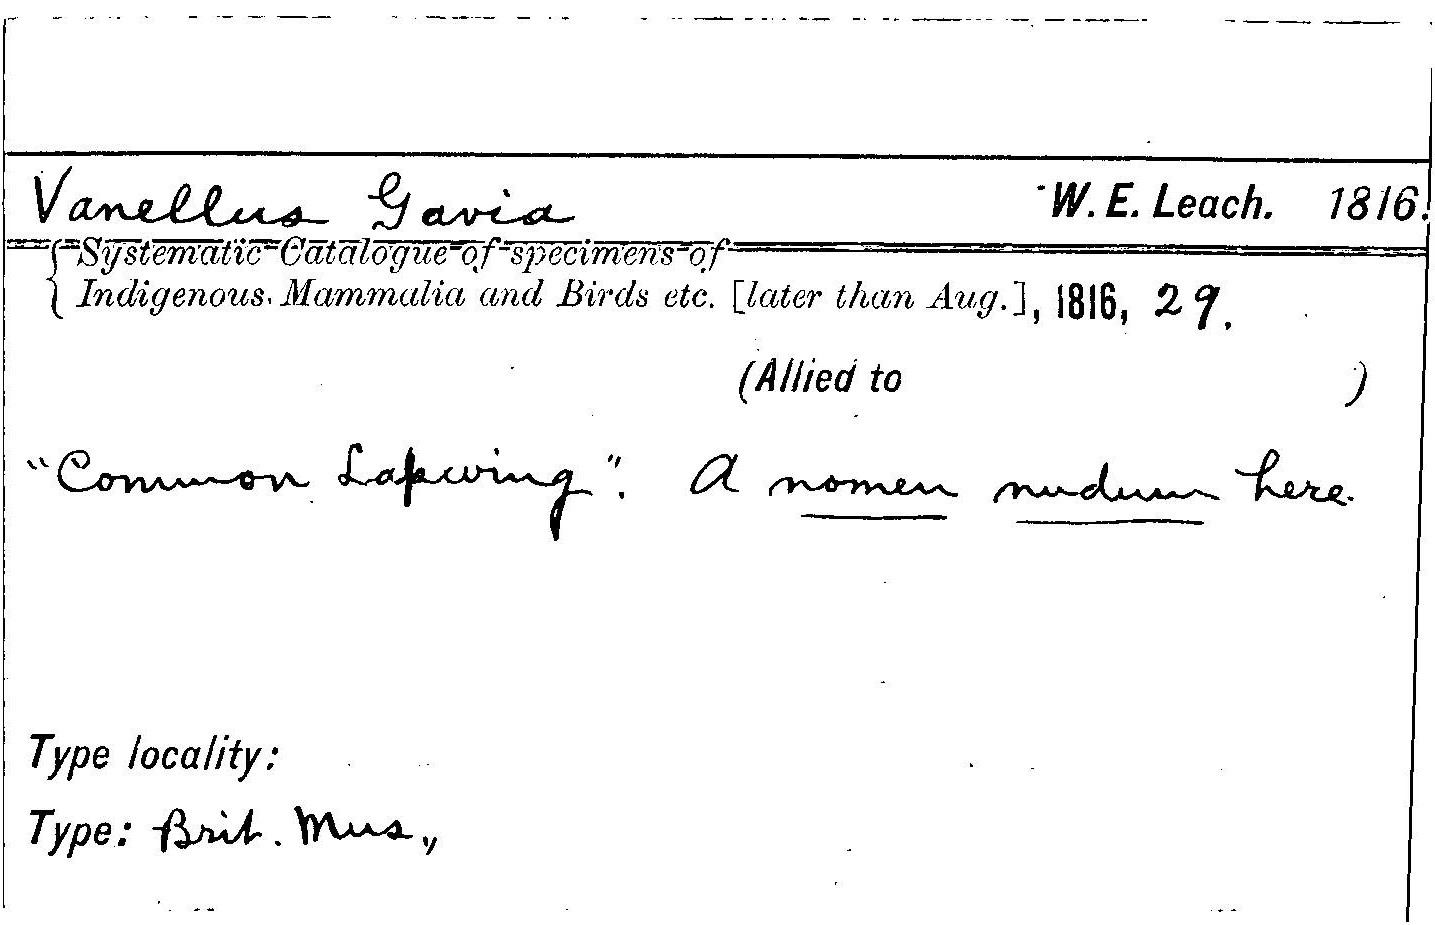 Vanellus Gavia W. E. Leach. 1816.
Systematic Catalogue of specimens of
Indigenous Mammalia and Birds etc. [later than Aug.], 1816, 29.
(Allied to )
"Common Lapwing". A nomen nudum here.
Type locality:
Type: Brit. Mus.,